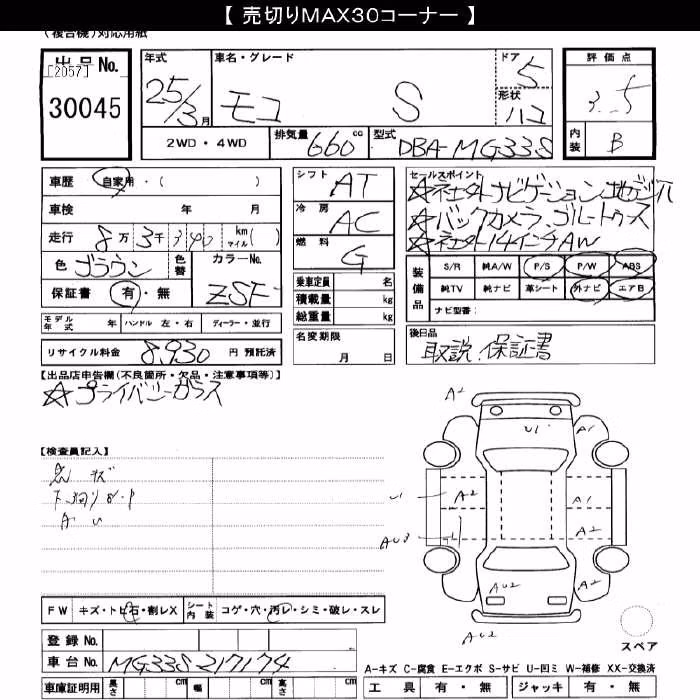 【 売切りMAX30コーナー 】
(複合機)対応用紙
出品No.
[2057]
30045
年式
25/3月
車名・グレード
モコ S
ドア
5
形状
ハコ
評価点
3.5
内装
B
2WD・4WD
排気量 660 cc
型式 DBA-MG33S
車歴 自家用・( )
車検 年 月
走行 8万3千340 km マイル( )
色 ブラウン
色替
カラーNo. ZSF
保証書 有・無
モデル年式 年 ハンドル 左・右 ディーラー・並行
リサイクル料金 8,930 円 預託済
シフト AT
冷房 AC
燃料 G
乗車定員 名
積載量 kg
総重量 kg
名変期限
月 日
セールスポイント
☆社外ナビゲーション地デジ
☆バックカメラ ブルートゥース
☆社外14インチAW
装備品
S/R 純A/W P/S P/W ABS
純TV 純ナビ 革シート 外ナビ エアB
ナビ型番:
後日品
取説.保証書
【出品店申告欄(不良箇所・欠品・注意事項等)】
☆プライバシーガラス
【検査員記入】
A U
A2
U1
A1
A2
A1
A2
AU3
AU2
AU2
スペア
FW キズ・トビ石・割レX
シート内装 コゲ・穴・汚レ・シミ・破レ・スレ
登録No.
車台No. MG33S 217174
車庫証明用 長さ cm 幅 cm 高さ cm
A-キズ C-腐食 E-エクボ S-サビ U-凹ミ W-補修 XX-交換済
工具 有・無 ジャッキ 有・無